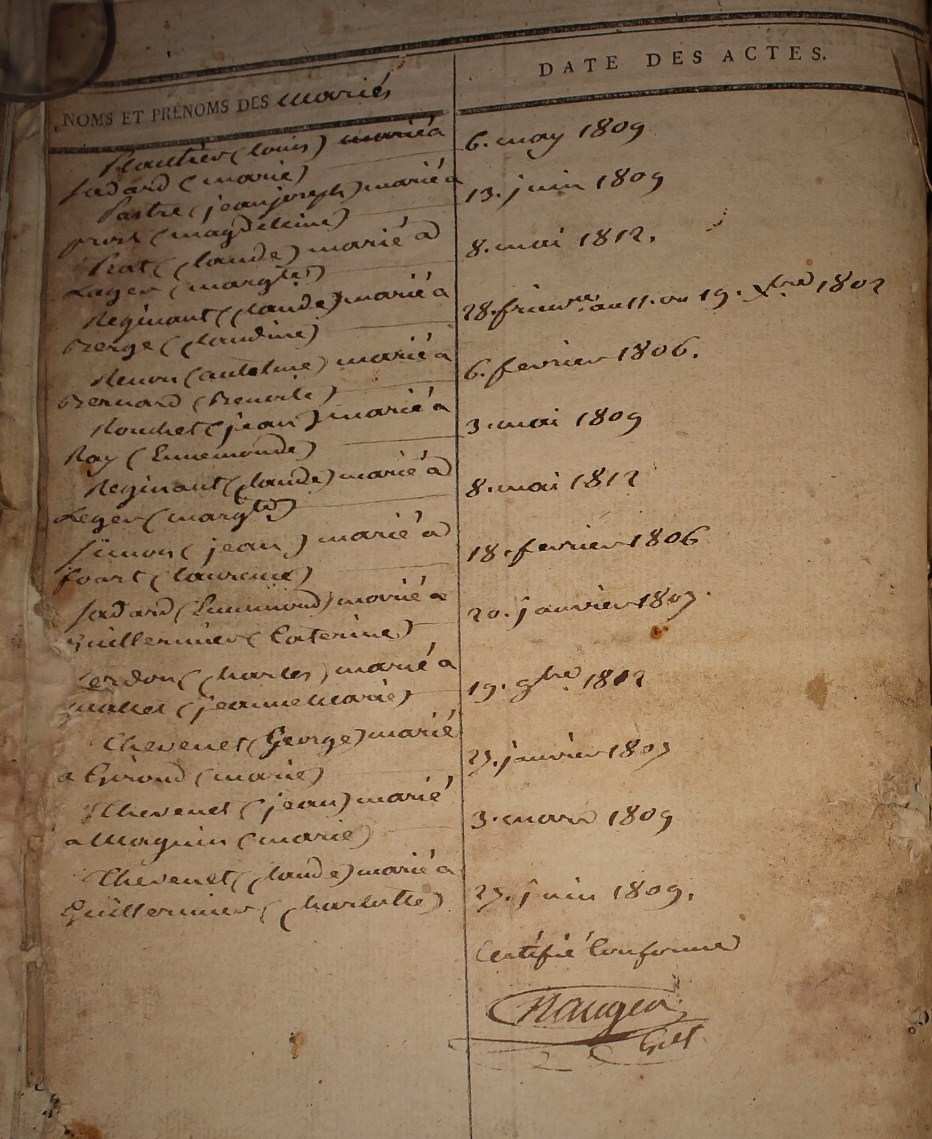 NOMS ET PRÉNOMS DES mariés
DATE DES ACTES.
Plantier (louis) marié à
Sadard (marie)
6. may 1809
Pastre (jean joseph) marié à
prost (magdeleine)
13. juin 1809
Prat (Claude) marié à
Leger (margte)
8. mai 1812.
Reginant (Claude) marié à
Berge (Claudine)
28. frimre. an 11. ou 19. Xbre 1802
Renon (antelme) marié à
Bernard (Benoite)
6. fevrier 1806.
Rouchet (jean) marié à
Ray (Ennemonde)
3. mai 1809
Reginant (Claude) marié à
Leger (margte)
8. mai 1812
Simon (jean) marié à
(laurence)
18. fevrier 1806
Sadard (Ennemond) marié à
Guillermier (Caterine)
20. janvier 1807.
Verdon (Charles) marié à
(jeanne Marie)
19. 9bre 1812
Chevenet (George) marié
à Girond (marie)
27. janvier 1807
Chevenet (jean) marié
à Maguin (marie)
3. mars 1809
Chevenet (Claude) marié à
Guillermier (Charlotte)
27. juin 1809.
Certifié Conforme